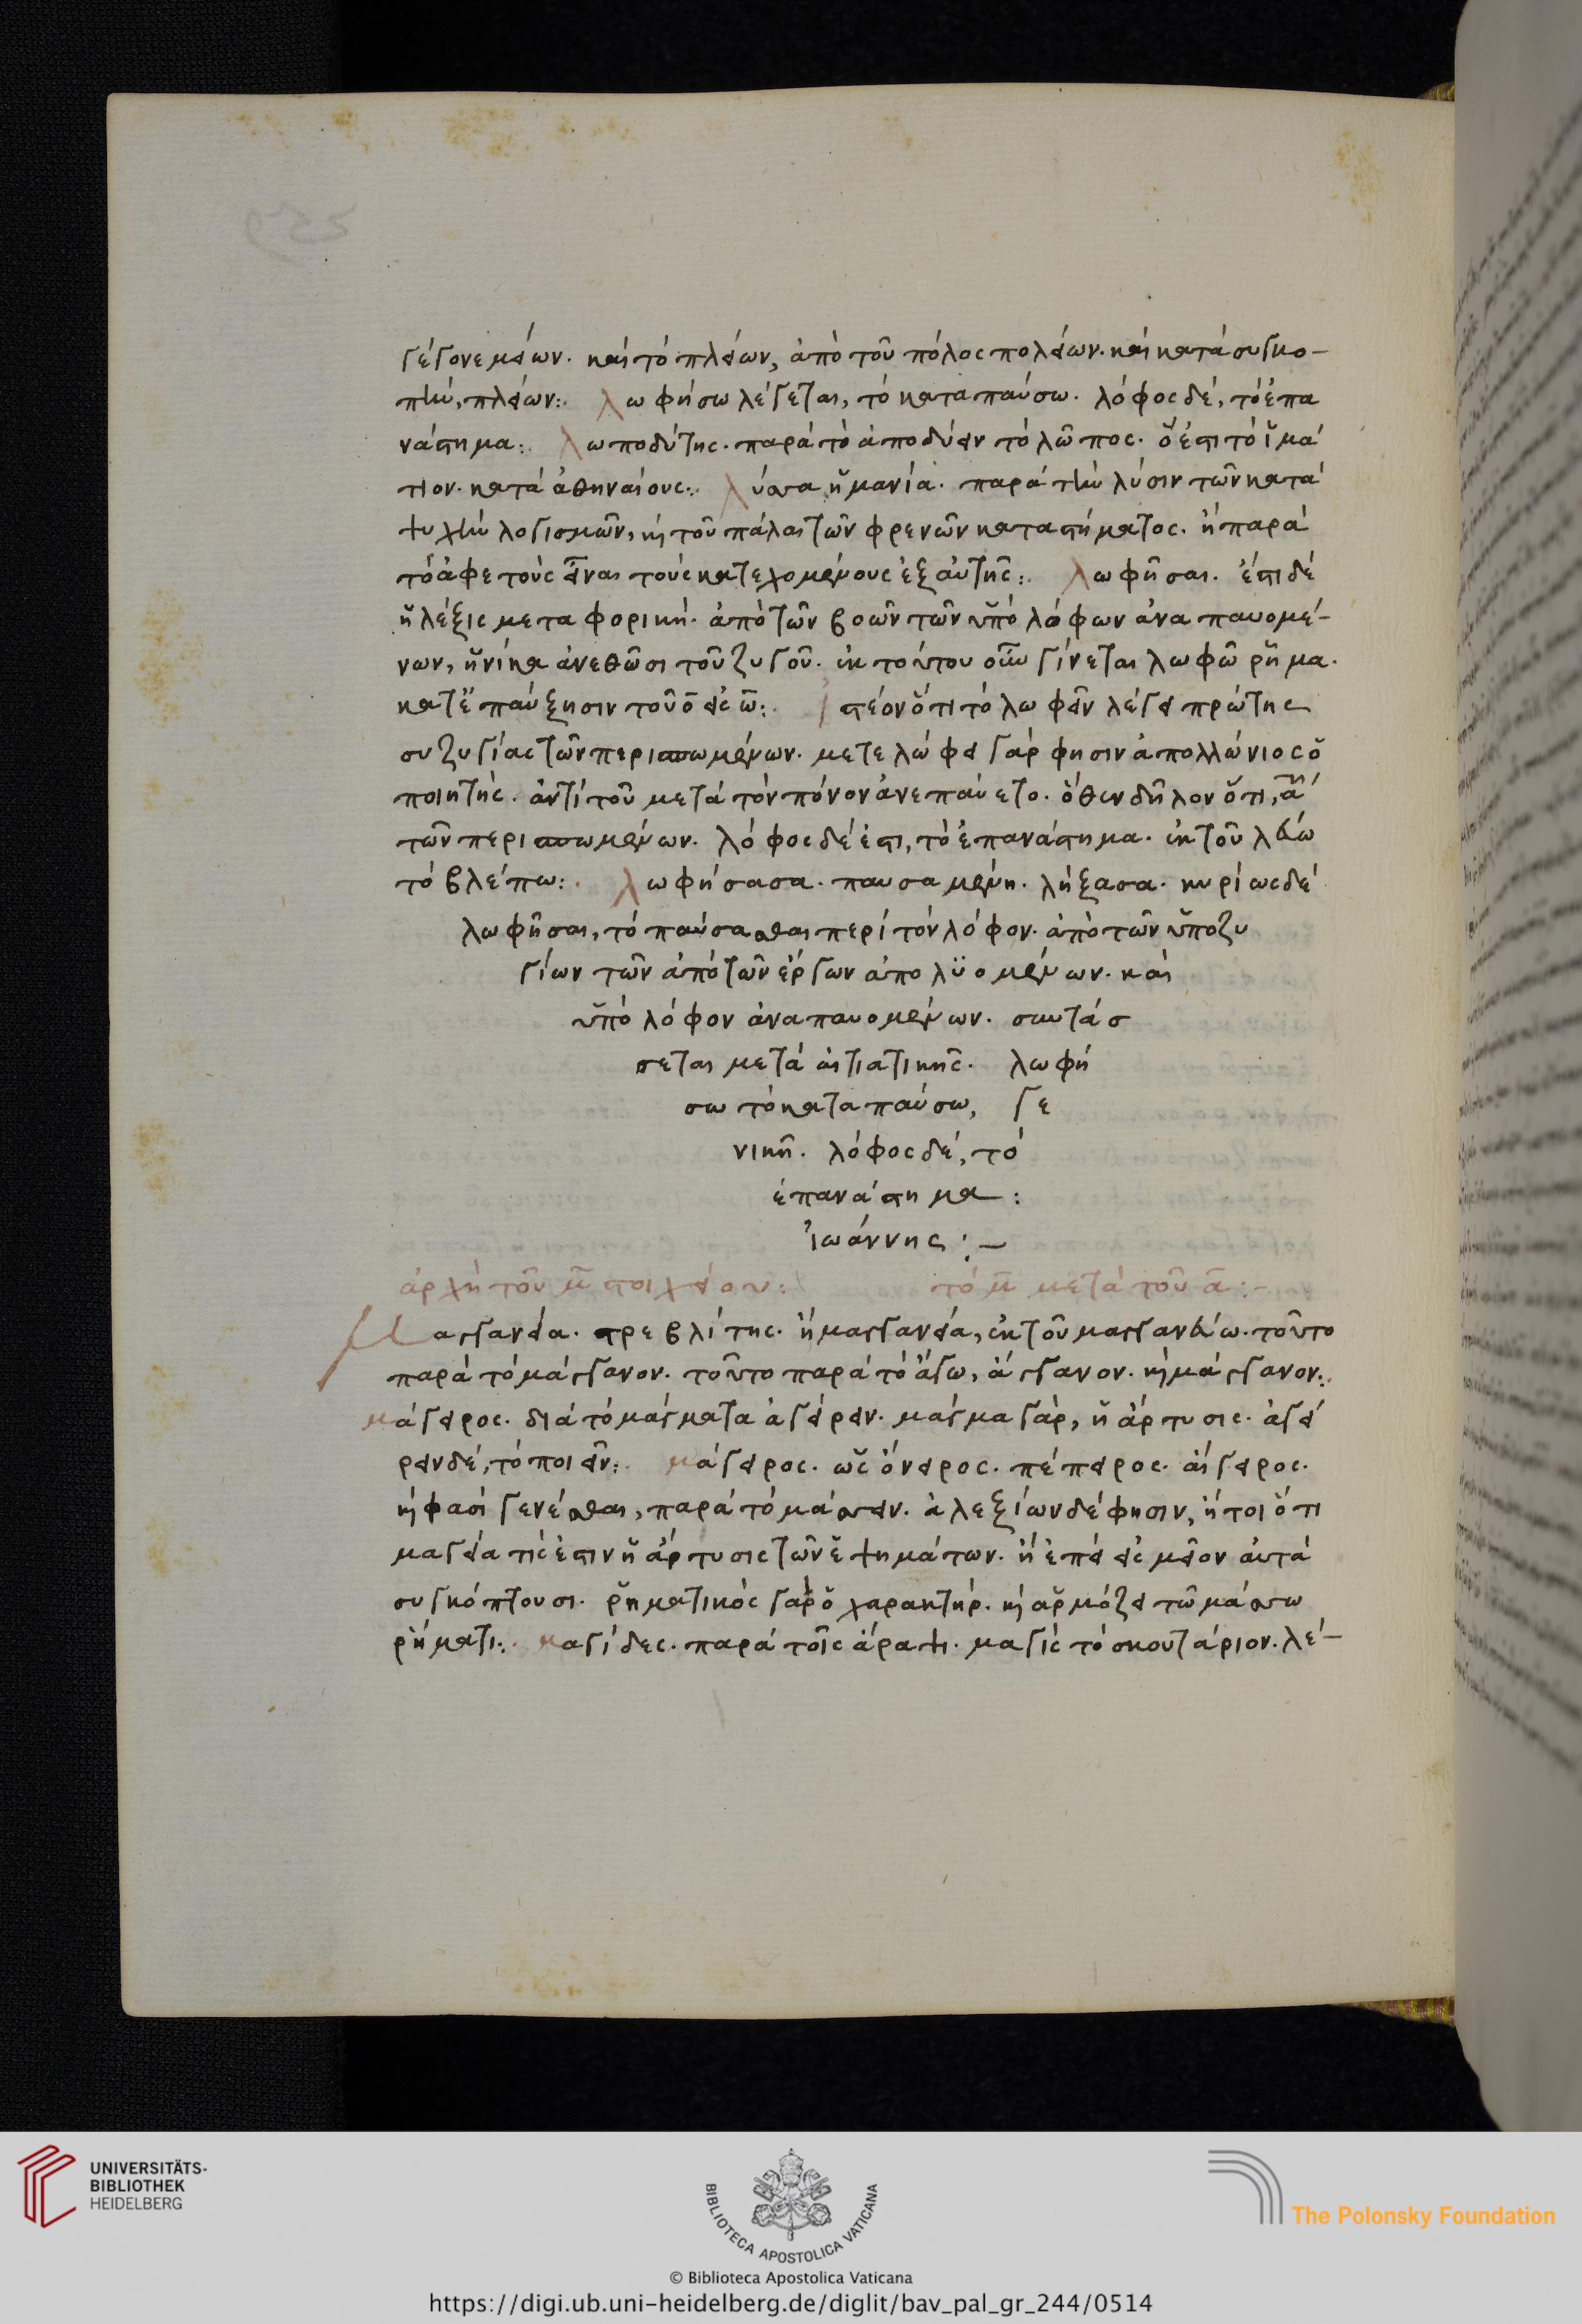 γέγονε μείων. καὶ τὸ πλείων, ἀπὸ τοῦ πόλος πολείων. καὶ κατὰ συγκο-
πὴν, πλείων:. λωφήσω λέγεται, τὸ καταπαύσω. λόφος δέ, τὸ ἐπα
νάστημα:. λωποδύτης. παρὰ τὸ ἀποδύειν τὸ λῶπος. ὅ ἐστι τὸ ἱμά
τιον. κατὰ ἀθηναίους:. λύσσα ἡ μανία. παρὰ τὴν λύσιν τῶν κατὰ
ψυχὴν λογισμῶν, καὶ τοῦ πάλαι τῶν φρενῶν καταστήματος. ἢ παρὰ
τὸ ἀφετοὺς εἶναι τοὺς κατεχομένους ἐξ αὐτῆς:. λωφῆσαι. ἔστι δὲ
ἡ λέξις μεταφορική. ἀπὸ τῶν βοῶν τῶν ὑπὸ λόφων ἀναπαυομέ-
νων, ἡνίκα ἀνεθῶσι τοῦ ζυγοῦ. ἐκ τούτου οὖν γίνεται λωφῶ ῥῆμα.
κατ' ἐπαύξησιν τοῦ ο εἰς ω:. ἰστέον ὅτι τὸ λωφεῖν λέγει πρώτης
συζυγίας τῶν περισπωμένων. μετελώφει γάρ φησιν ἀπολλώνιος ὁ
ποιητής. ἀντὶ τοῦ μετὰ τὸν πόνον ἀνεπαύετο. ὅθεν δῆλον ὅτι, α
τῶν περισπωμένων. λόφος δέ ἐστι, τὸ ἐπανάστημα. ἐκ τοῦ λάω
τὸ βλέπω:. λωφήσασα. παυσαμένη. λήξασα. κυρίως δὲ
λωφῆσαι, τὸ παύσασθαι περὶ τὸν λόφον. ἀπὸ τῶν ὑποζυ
γίων τῶν ἀπὸ τῶν ἔργων ἀπολϋομένων. καὶ
ὑπὸ λόφον ἀναπαυομένων. συντάσ
σεται μετὰ αἰτιατικῆς. λωφή
σω τὸ καταπαύσω, γε
νικῇ. λόφος δέ, τὸ
ἐπανάστημα:
ἰωάννης:-
ἀρχὴ τοῦ μ στοιχείου: τὸ μ μετὰ τοῦ α:-
Μαγγανεία. στρεβλίτης. ἢ μαγγανεία, ἐκ τοῦ μαγγανεύω. τοῦτο
παρὰ τὸ μάγγανον. τοῦτο παρὰ τὸ ἄγω, ἄγγανον. καὶ μάγγανον:.
μάγειρος. διὰ τὸ μάγματα ἀγείρειν. μάγμα γάρ, ἡ ἄρτυσις. ἀγεί
ρειν δέ, τὸ ποιεῖν:. μάγειρος. ὡς ὄνειρος. πέπειρος. αἴγειρος.
καὶ φασὶ γενέσθαι, παρὰ τὸ μάσσειν. ἀλεξίων δέ φησιν, ἤτοι ὅτι
μαγεία τίς ἐστιν ἡ ἄρτυσις τῶν ἑψημάτων. ἢ ἐπεὶ εἰς μεῖον αὐτὰ
συγκόπτουσι. ῥηματικὸς γὰρ ὁ χαρακτήρ. καὶ ἁρμόζει τῶ μάσσω
ῥήματι:. μαγίδες. παρὰ τοῖς ἄραψι. μαγὶς τὸ σκουτάριον. λέ-
UNIVERSITÄTS-
BIBLIOTHEK
HEIDELBERG
BIBLIOTECA APOSTOLICA VATICANA
The Polonsky Foundation
© Biblioteca Apostolica Vaticana
https://digi.ub.uni-heidelberg.de/diglit/bav_pal_gr_244/0514